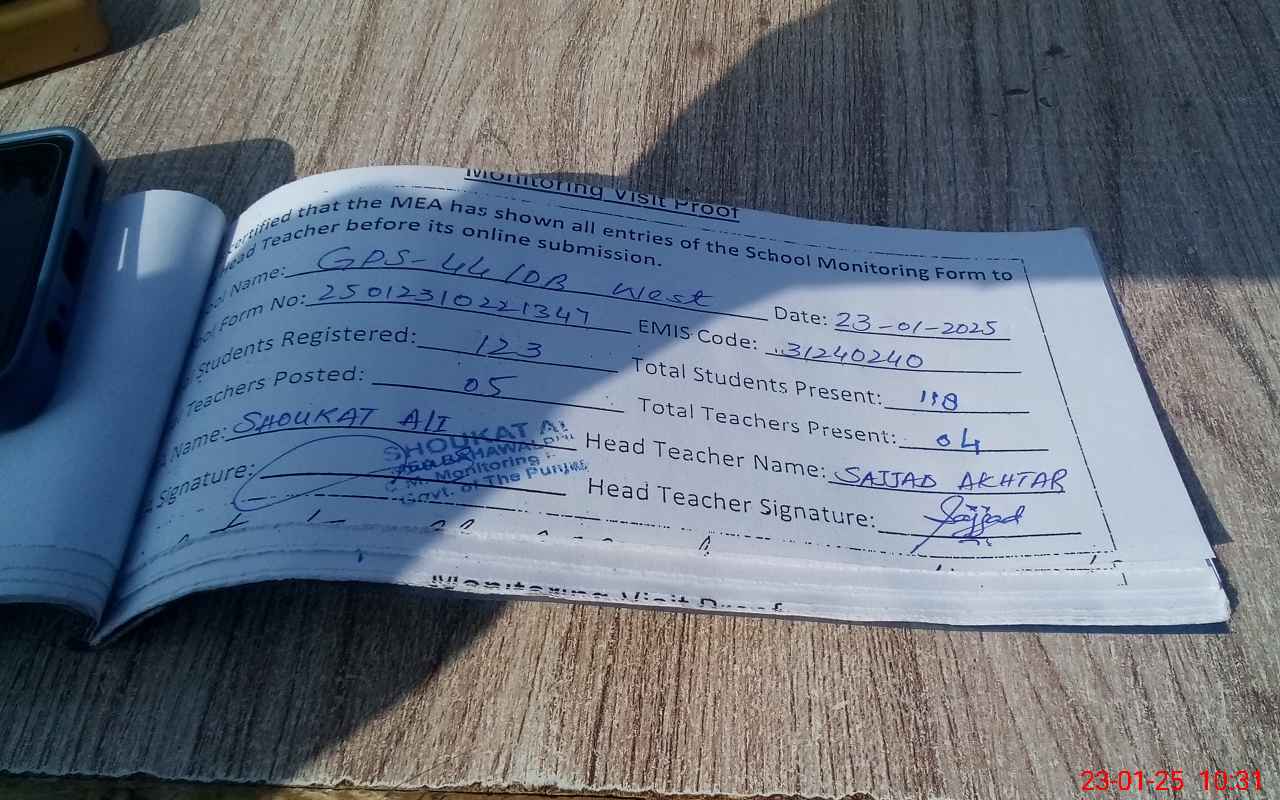 Monitoring Visit Proof
certified that the MEA has shown all entries of the School Monitoring Form to
Head Teacher before its online submission.
ool Name: GPS-44/DB West Date: 23-01-2025
ool Form No: 25012310221347 EMIS Code: 31240240
Students Registered: 123 Total Students Present: 118
Teachers Posted: 05 Total Teachers Present: 04
Name: SHOUKAT ALI Head Teacher Name: SAJJAD AKHTAR
Signature: Head Teacher Signature: Sajjad
SHOUKAT A
Monitoring
Govt. of The Punjab
Monitoring Visit Proof
23-01-25 10:31